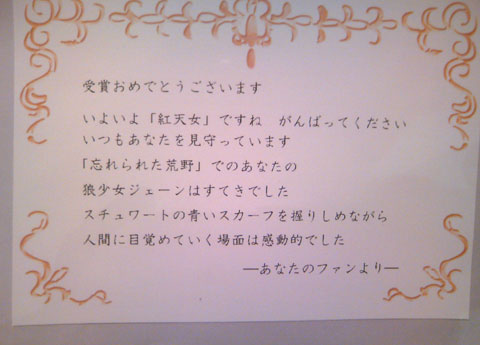 受賞おめでとうございます
いよいよ「紅天女」ですね　がんばってください
いつもあなたを見守っています
「忘れられた荒野」でのあなたの
狼少女ジェーンはすてきでした
スチュワートの青いスカーフを握りしめながら
人間に目覚めていく場面は感動的でした
―あなたのファンより―